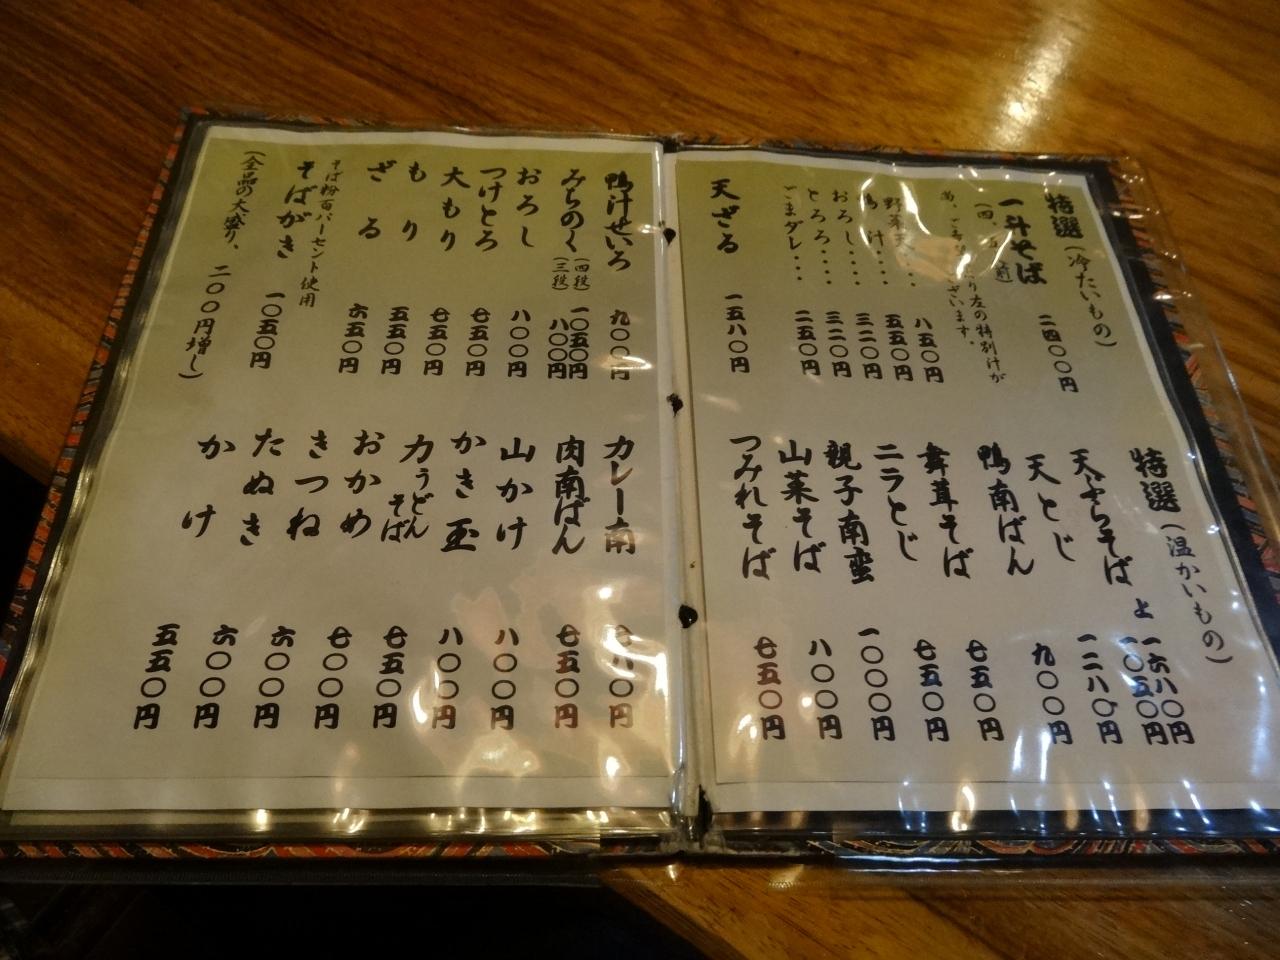 特選(冷たいもの)
一斗そば 二四〇〇円
左の特別汁が
ございます。
八五〇円
野菜天・・・ 五五〇円
汁・・・・ 三二〇円
おろし・・・・ 三二〇円
とろろ・・・ 二五〇円
ごまダレ・・・
天ざる 一五八〇円
特選(温かいもの)
天ぷらそば 上 一六八〇円
一〇五〇円
天とじ 一二八〇円
鴨南ばん 九〇〇円
舞茸そば 七五〇円
ニラとじ 七五〇円
親子南蛮 一〇〇〇円
山菜そば 八〇〇円
つみれそば 七五〇円
鴨汁せいろ 九〇〇円
みちのく(四段) 一〇五〇円
(三段) 八〇〇円
おろし 八〇〇円
つけとろ 七五〇円
大もり 七五〇円
もり 五五〇円
ざる 六五〇円
そば粉百パーセント使用
そばがき 一〇五〇円
(全品の大盛り、二〇〇円増し)
カレー南 七八〇円
肉南ばん 七五〇円
山かけ 八〇〇円
かき玉 八〇〇円
力うどん
そば 七五〇円
おかめ 七〇〇円
きつね 六〇〇円
たぬき 六〇〇円
かけ 五五〇円